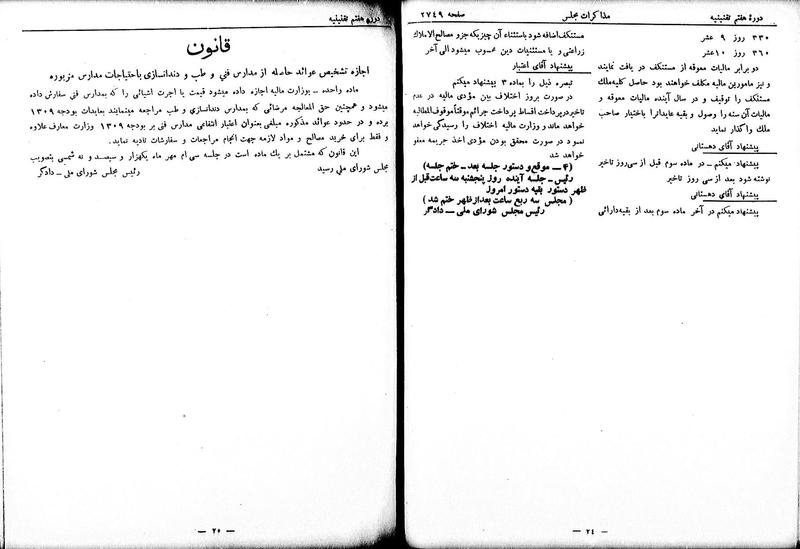 دورهٔ هفتم تقنینیه
مذاکرات مجلس
صفحه ۲۷۴۹
۳۳۰ روز ۹ عشر
۳۶۰ روز ۱۰ عشر
دو برابر مالیات معوقه از مستنکف در یافت نمایند
و نیز مامورین مالیه مکلف خواهند بود حاصل کلیه ملک
مستنکف را توقیف و در سال آینده مالیات معوقه و
مالیات آن سنه را وصول و بقیه عایدات را باختیار صاحب
ملک واگذار نماید
پیشنهاد آقای دهستانی
پیشنهاد میکنم ـ در ماده سوم قبل از سی روز تاخیر
نوشته شود بعد از سی روز تاخیر
پیشنهاد آقای دهستانی
پیشنهاد میکنم در آخر ماده سوم بعد از بقیه دارائی
مستنکف اضافه شود باستثناء آن چیزیکه جزو مصالح الاملاک
زراعتی و یا مستثنیات دین محسوب میشود الی آخر
پیشنهاد آقای اعتبار
تبصره ذیل را بماده ۳ پیشنهاد میکنم
در صورت بروز اختلاف بین مؤدی مالیه در عدم
تاخیر در پرداخت اقساط پرداخت جرائم موقتاً موقوف المطالبه
خواهد ماند و وزارت مالیه اختلاف را رسیدگی خواهد
نمود در صورت محقق بودن مؤدی اخذ جریمه معفو
خواهد شد
(۴ ــ موقع و دستور جلسه بعد ـ ختم جلسه)
رئیس ـ جلسه آینده روز پنجشنبه سه ساعت قبل از
ظهر دستور بقیه دستور امروز
(مجلس سه ربع ساعت بعد از ظهر ختم شد)
رئیس مجلس شورای ملی ــ دادگر
ــ ۲٤ ــ
دوره هفتم تقنینیه
قانون
اجازه تشخیص عوائد حاصله از مدارس فنی و طب و دندانسازی باحتیاجات مدارس مزبوره
ماده واحده ـ بوزارت مالیه اجازه داده میشود قیمت یا اجرت اشیائی را که بمدارس فنی سفارش داده
میشود و همچنین حق المعالجه مرضائی که بمدارس دندانسازی و طب مراجعه مینمایند بعایدات بودجه ۱۳۰۹
برده و در حدود عوائد مذکوره مبلغی بعنوان اعتبار انتفاعی مدارس فنی بر بودجه ۱۳۰۹ وزارت معارف علاوه
و فقط برای خرید مصالح و مواد لازمه جهت انجام مراجعات و سفارشات تادیه نماید.
این قانون که مشتمل بر یک ماده است در جلسه سی ام مهر ماه یکهزار و سیصد و نه شمسی بتصویب
مجلس شورای ملی رسید
رئیس مجلس شورای ملی ــ دادگر
ــ ۲٥ ــ